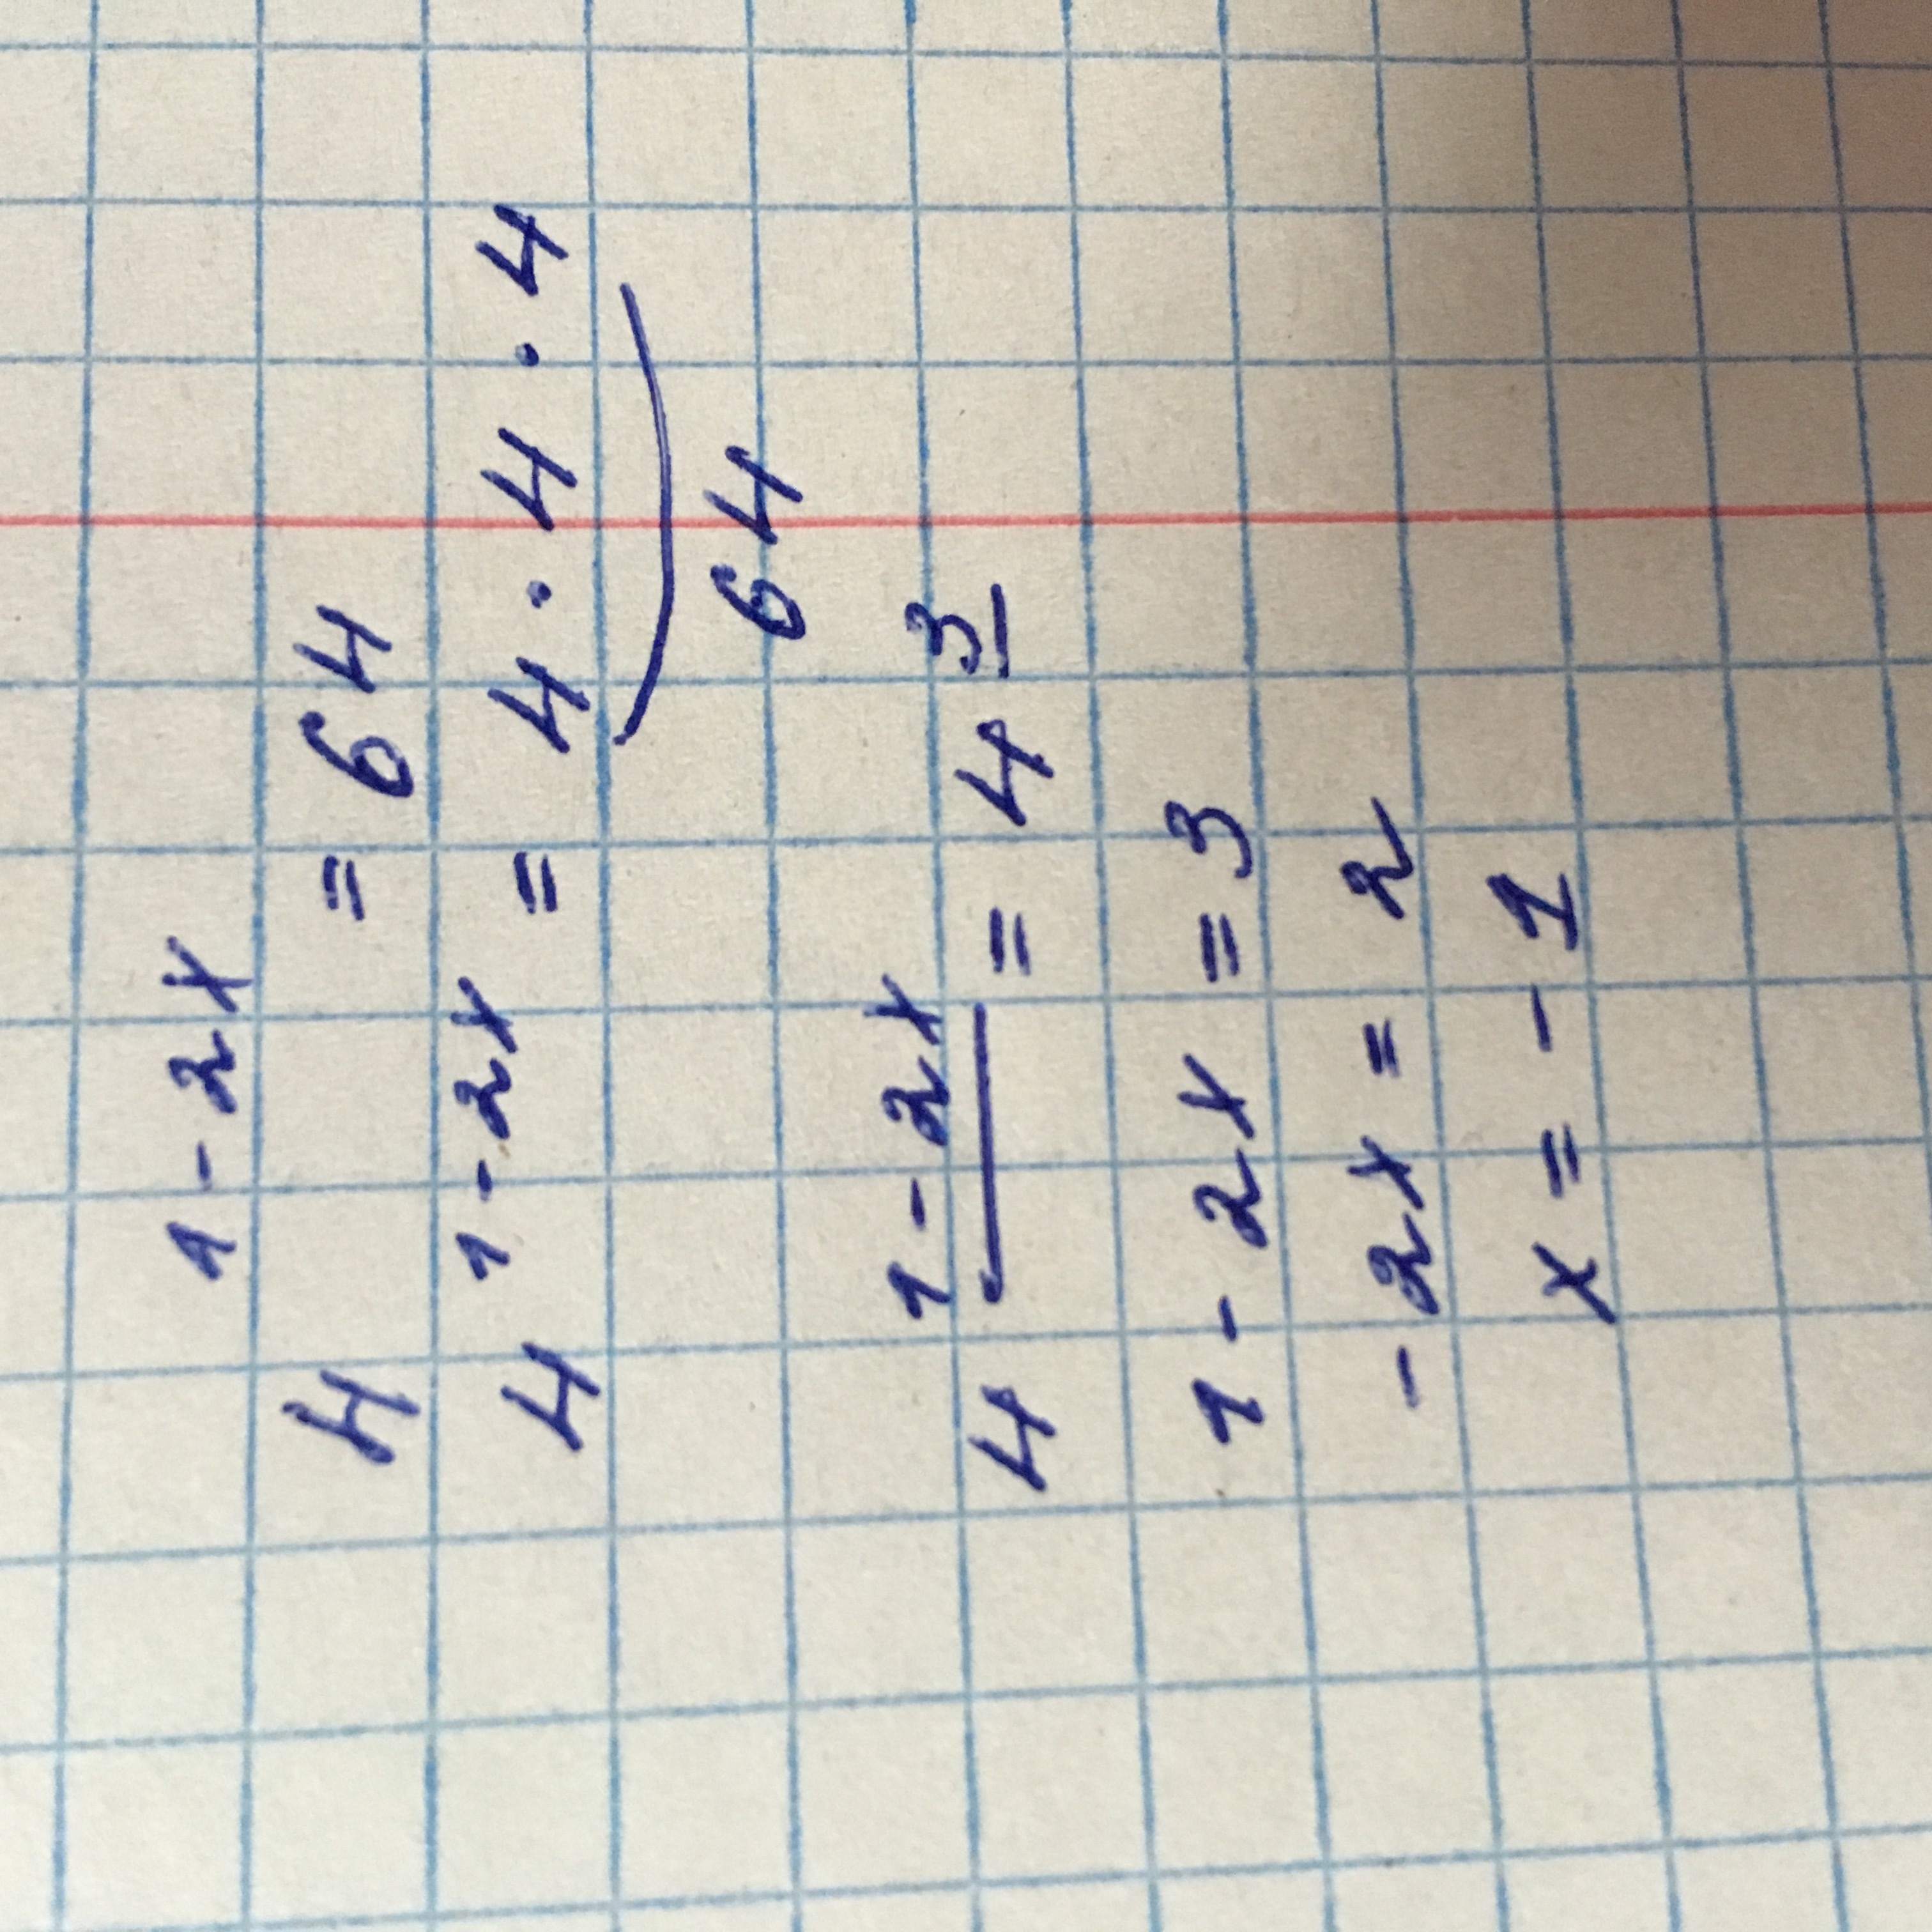 4^{1-2x} = 64
4^{1-2x} = 4 · 4 · 4
64
4^{1-2x} = 4^{3}
1 - 2x = 3
- 2x = 2
x = - 1